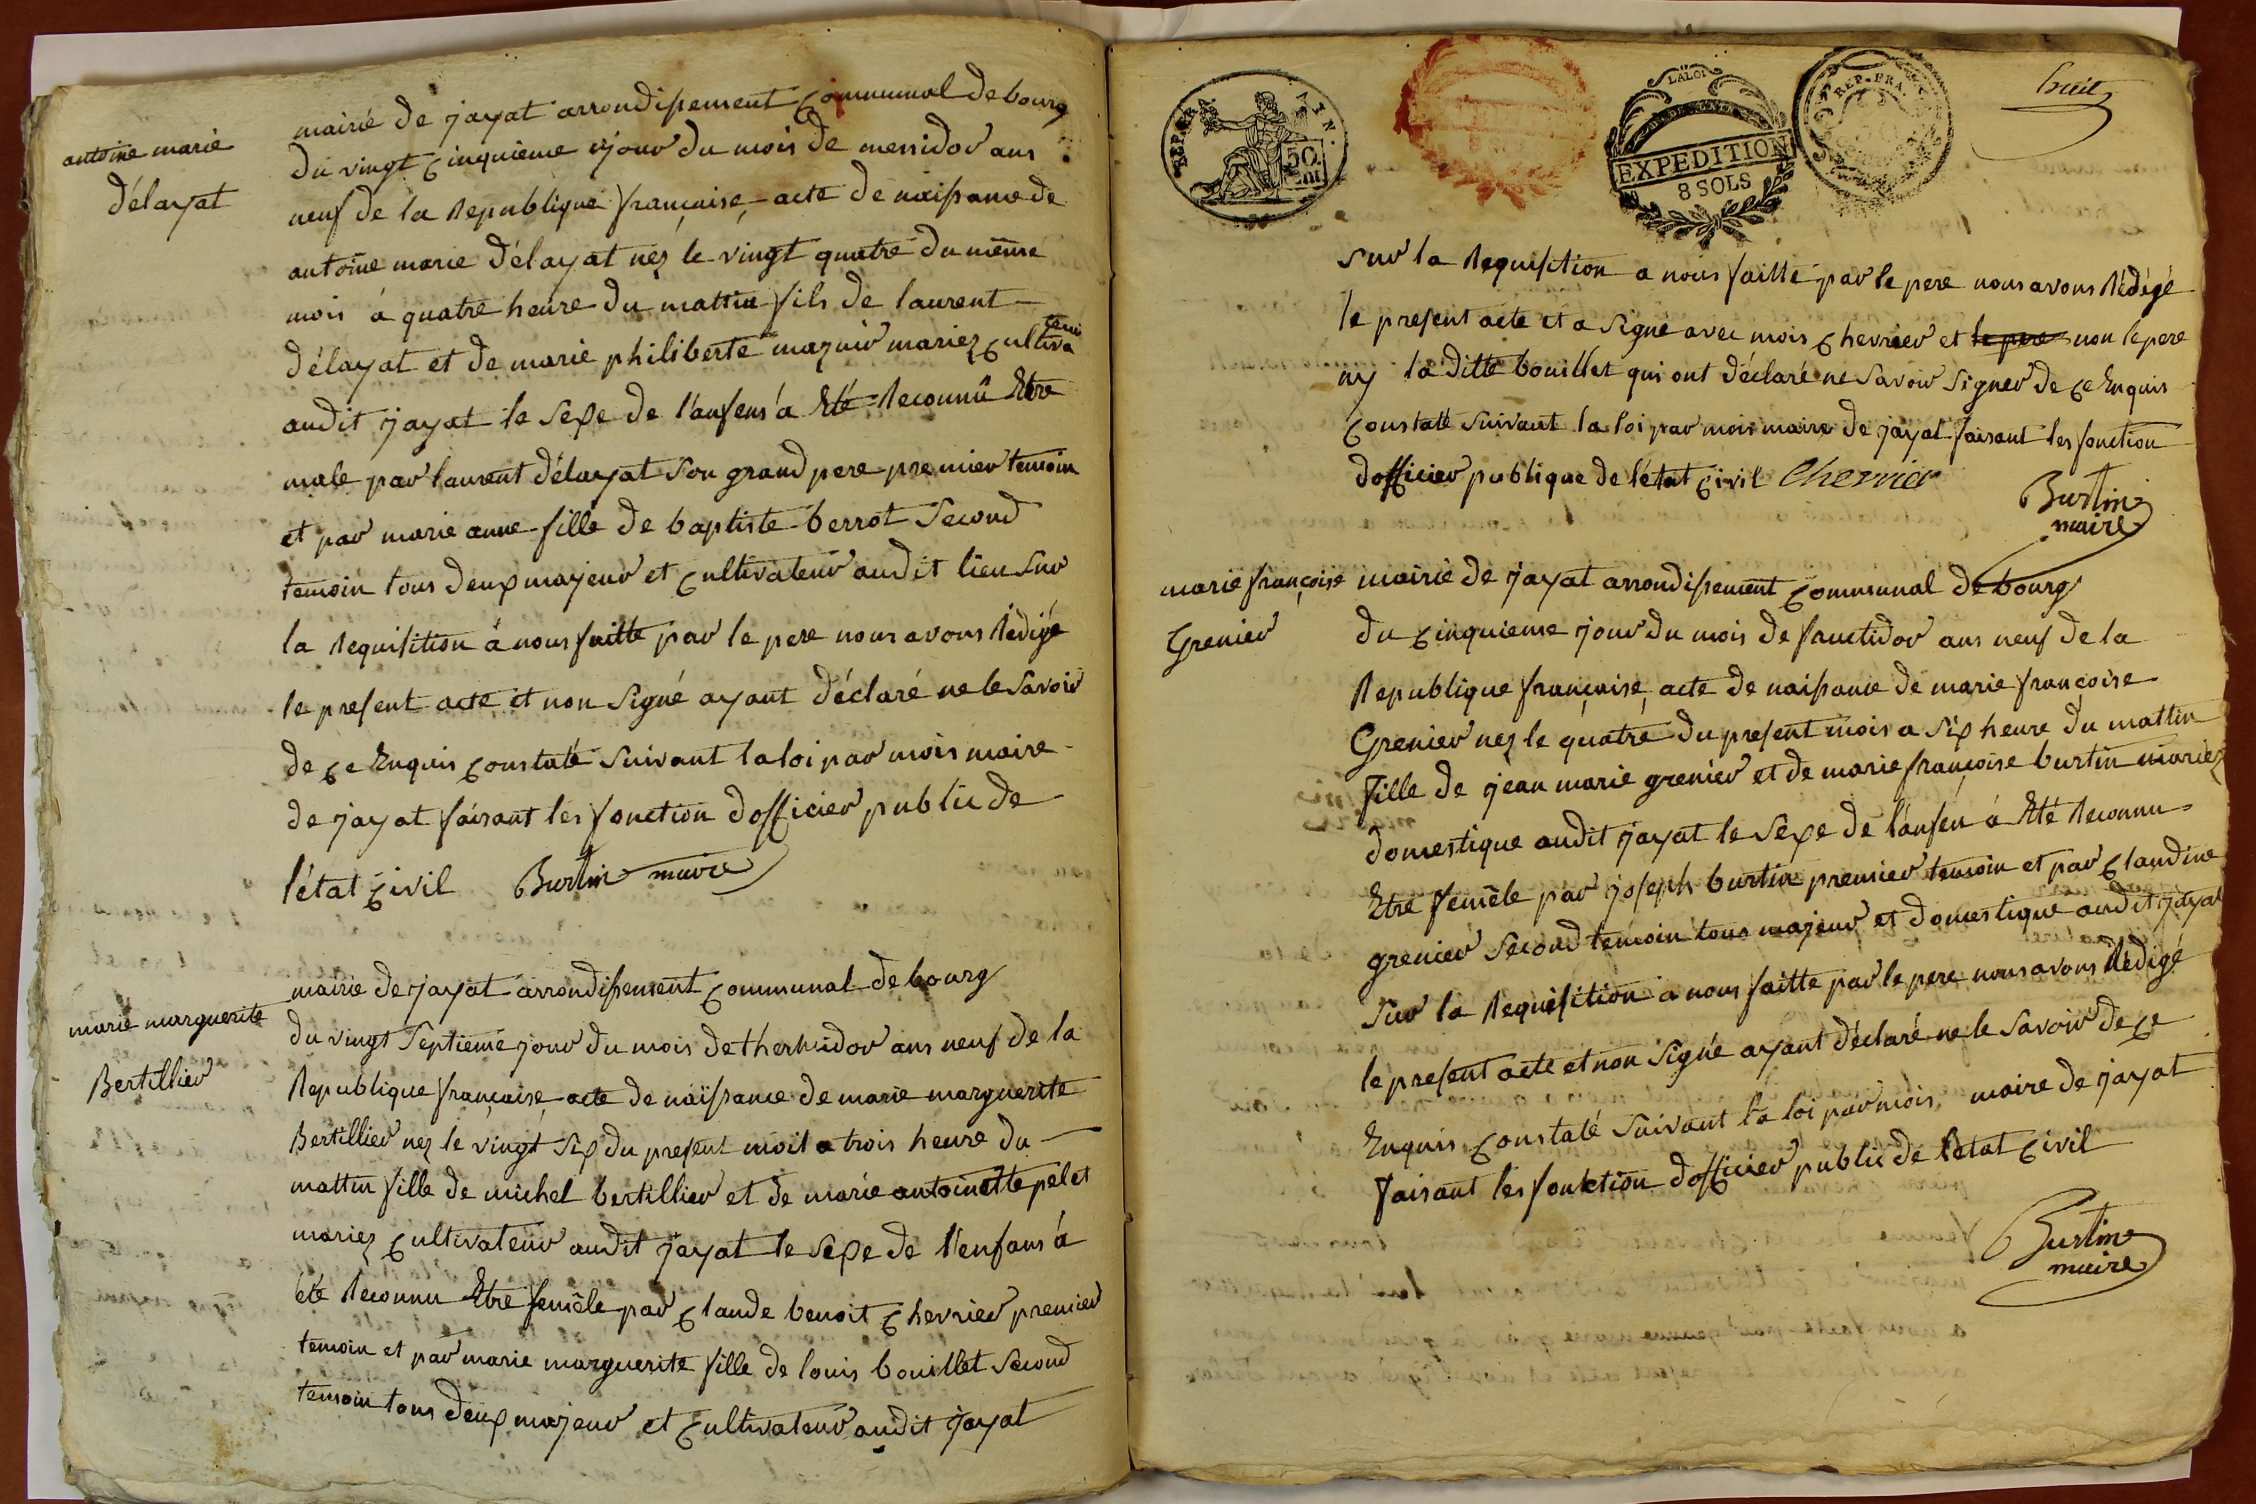 antoine marie
délayat
mairie de jayat arrondissement communal de bourg
du vingt cinquieme jour du mois de messidor ans
neuf de la Republique française, acte de naissance de
antoine marie délayat nez le vingt quatre du même
mois à quatre heure du mattin fils de laurent
délayat et de marie philiberte mazuir mariez cultiva
teur
audit jayat le sexe de l'anfens a Eté Reconnû Etre
male par laurent délayat son grand pere premier temoin
et par marie anne fille de baptiste berrot second
temoin tous deux majeur et cultivateur audit lieu sur
la Requisition à nous faitte par le pere nous avons Rédigé
le present acte et non signé ayant déclaré ne le savoir
de ce Enquis constaté suivant la loi par mois maire
de jayat faisant les fonction dofficier public de
l'état civil Burtin maire
marie marguerite
Bertillier
mairie de jayat arrondissement communal de bourg
du vingt septieme jour du mois de thermidor ans neuf de la
Republique française acte de naissance de marie marguerite
Bertillier nez le vingt six du present moit a trois heure du
mattin fille de michel bertillier et de marie antoinette pelet
mariez cultivateur audit jayat le sexe de l'enfans à
été Reconnu Etre femêle par claude benoit chevrier premier
temoin et par marie marguerite fille de louis bouillet second
temoin tous deux majeur et cultivateur audit jayat
REP. FRA.
50
LA LOI
EXPEDITION
8 SOLS
REP. FRA.
huit
sur la Requisition a nous faitte par le pere nous avons Rédigé
le present acte et a signé avec mois chevrier et le pere non le pere
ny la ditte bouillet qui ont déclaré ne savoir signer de ce Enquis
constaté suivant la loi par mois maire de jayat faisant les fonction
dofficier publique de l'état civil Chevrier
Burtin
maire
marie françoise
Grenier
mairie de jayat arrondissement communal de bourg
du cinquieme jour du mois de fructidor ans neuf de la
Republique française, acte de naissance de marie françoise
Grenier nez le quatre du present mois a six heure du mattin
fille de jean marie grenier et de marie françoise burtin mariez
domestique audit jayat le sexe de l'anfen à Eté Reconnu
Etre femêle par joseph burtin premier temoin et par claudine
grenier second temoin tous majeur et domestique audit jayat
sur la Requisition a nous faitte par le pere nous avons Rédigé
le present acte et non signé ayant déclaré ne le savoir de ce
Enquis constaté suivant la loi par mois maire de jayat
faisant les fonktion dofficier public de l'etat civil
Burtin
maire